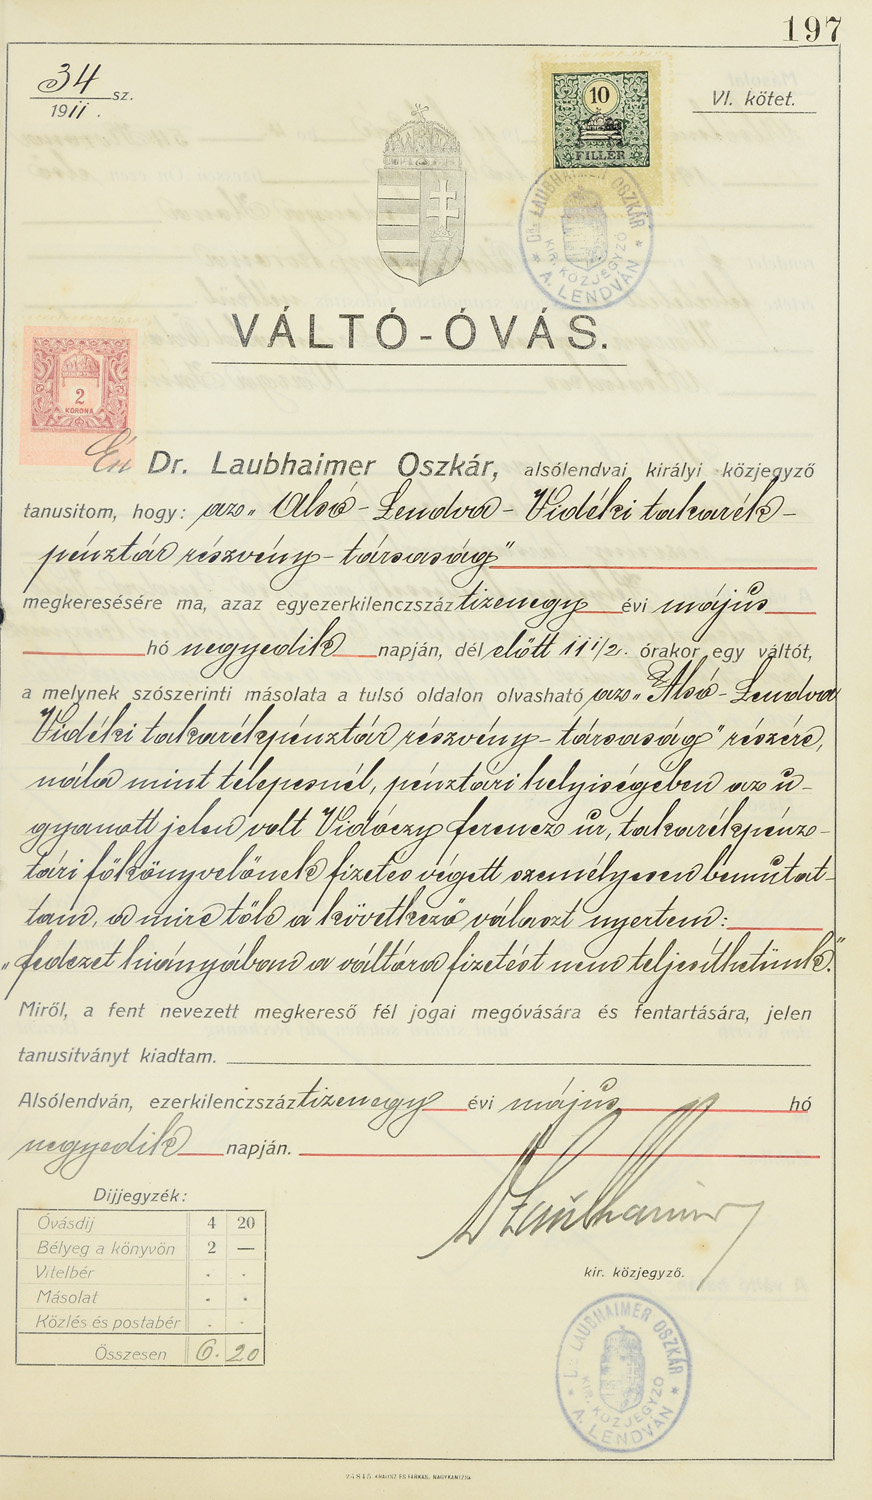 197
34 sz.
1911.
VI. kötet.
10
FILLÉR
DR. LAUBHAIMER OSZKÁR
KIR. KÖZJEGYZŐ
* A. LENDVÁN *
VÁLTÓ-ÓVÁS.
2
KORONA
Én Dr. Laubhaimer Oszkár, alsólendvai királyi közjegyző
tanusitom, hogy: az „Alsó-Lendva-Vidéki takarék-
pénztár részvény-társaság"
megkeresésére ma, azaz egyezerkilenczszáz tizenegy évi május
hó negyedik napján, dél előtt 11 1/2. órakor egy váltót,
a melynek szószerinti másolata a tulsó oldalon olvasható az „Alsó-Lendva
Vidéki takarékpénztár részvény-társaság" részére,
nála mint telepesnél, pénztári helyiségében az u-
gyanott jelen volt Vidóczy ferencz úr, takarékpénz-
tári főkönyvelőnek fizetés végett személyesen bemutat-
tam, a mire tőle a következő választ nyertem:
„fedezet hiányában a váltóra fizetést nem teljesíthetünk."
Miről, a fent nevezett megkereső fél jogai megóvására és fentartására, jelen
tanusitványt kiadtam.
Alsólendván, ezerkilenczszáz tizenegy évi május hó
negyedik napján.
Dijjegyzék:
Óvásdij 4 20
Bélyeg a könyvön 2 —
Vitelbér . .
Másolat . .
Közlés és postabér . .
Összesen 6. 20
Dr Laubhaimer
kir. közjegyző.
DR. LAUBHAIMER OSZKÁR
KIR. KÖZJEGYZŐ
* A. LENDVÁN *
KRAUSZ ÉS FARKAS, NAGYKANIZSA